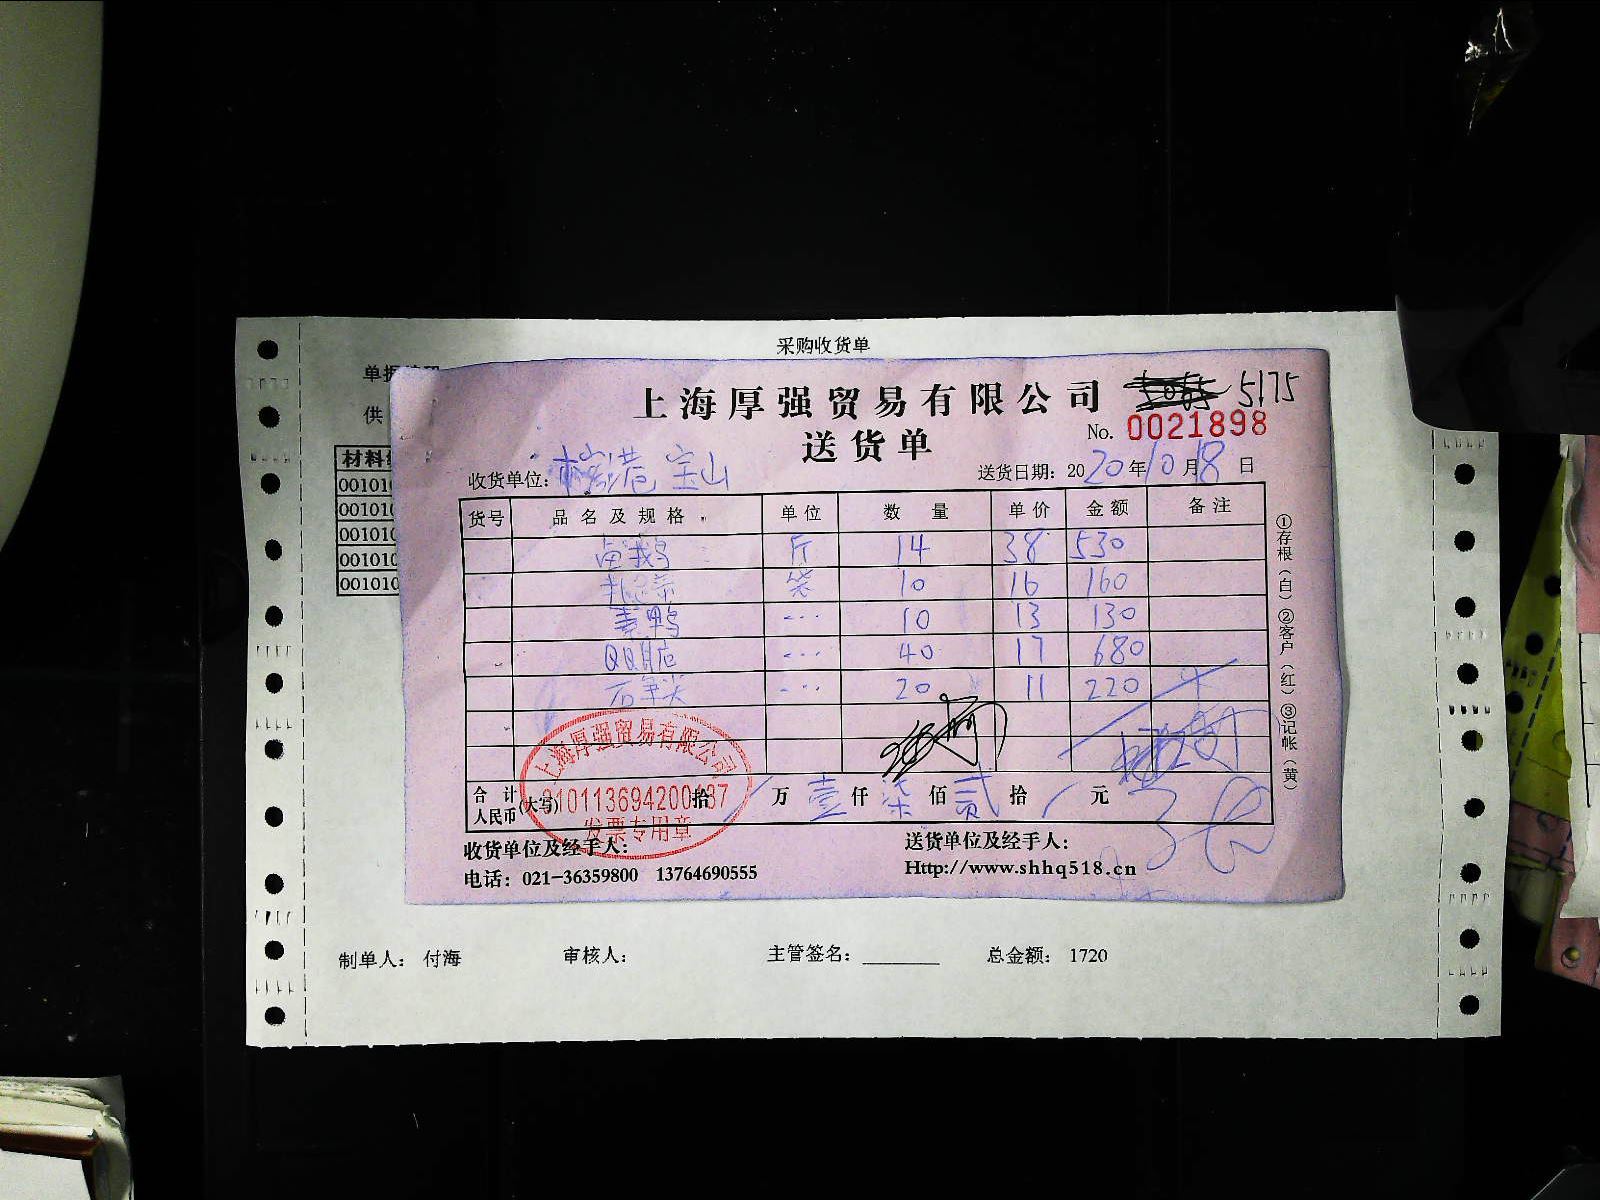 采购收货单
单据
供
材料
001010
001010
001010
001010
001010
上海厚强贸易有限公司 5175
送货单 No. 0021898
收货单位: 港 宝山 送货日期: 2020年10月18日
货号 品名及规格 单位 数量 单价 金额 备注
斤 14 38 530
袋 10 16 160
姜鸭 --- 10 13 130
QQ --- 40 17 680
石笋尖 --- 20 11 220
合计人民币(大写) 拾 / 万 壹 仟 柒 佰 贰 拾 / 元
上海厚强贸易有限公司
发票专用章
收货单位及经手人: 送货单位及经手人:
电话: 021-36359800 13764690555 Http://www.shhq518.cn
①存根(白)②客户(红)③记帐(黄)
制单人: 付海 审核人: 主管签名: 总金额: 1720